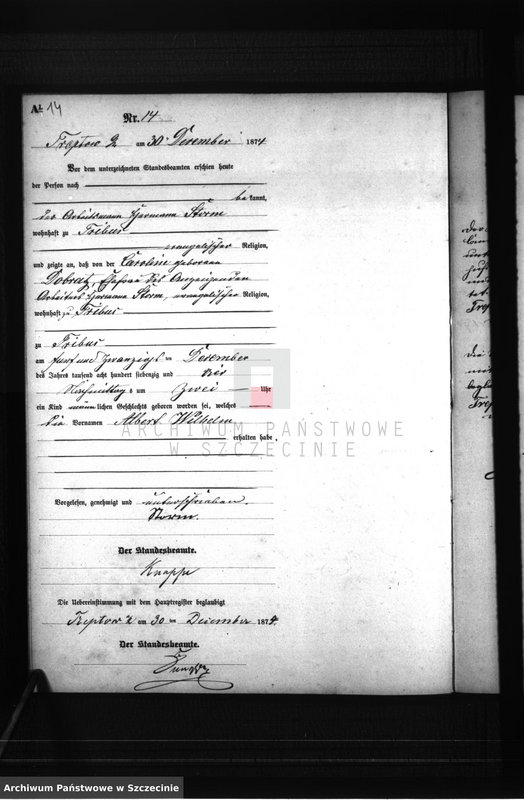 A 14
Nr. 14
Treptow a am 30 Dezember 1874
Vor dem unterzeichneten Standesbeamten erschien heute
der Person nach
bekannt,
der Arbeitsmann Hermann Storm
wohnhaft zu Tribus
evangelischer Religion,
und zeigte an, daß von der Caroline geborenen
Dobratz, Ehefrau des Anzeigenden
Arbeiters Hermann Storm, evangelischer Religion,
wohnhaft zu Tribus
zu Tribus
am fünf und zwanzigsten Dezember
des Jahres tausend acht hundert siebenzig und vier
Nachmittags um zwei Uhr
ein Kind männlichen Geschlechts geboren worden sei, welches
die Vornamen Albert Wilhelm
erhalten habe,
ARCHIWUM PAŃSTWOWE
W SZCZECINIE
Vorgelesen, genehmigt und unterschrieben.
Storm.
Der Standesbeamte.
Knappe
Die Uebereinstimmung mit dem Hauptregister beglaubigt
Treptow a am 30 ten Dezember 1874.
Der Standesbeamte.
Archiwum Państwowe w Szczecinie